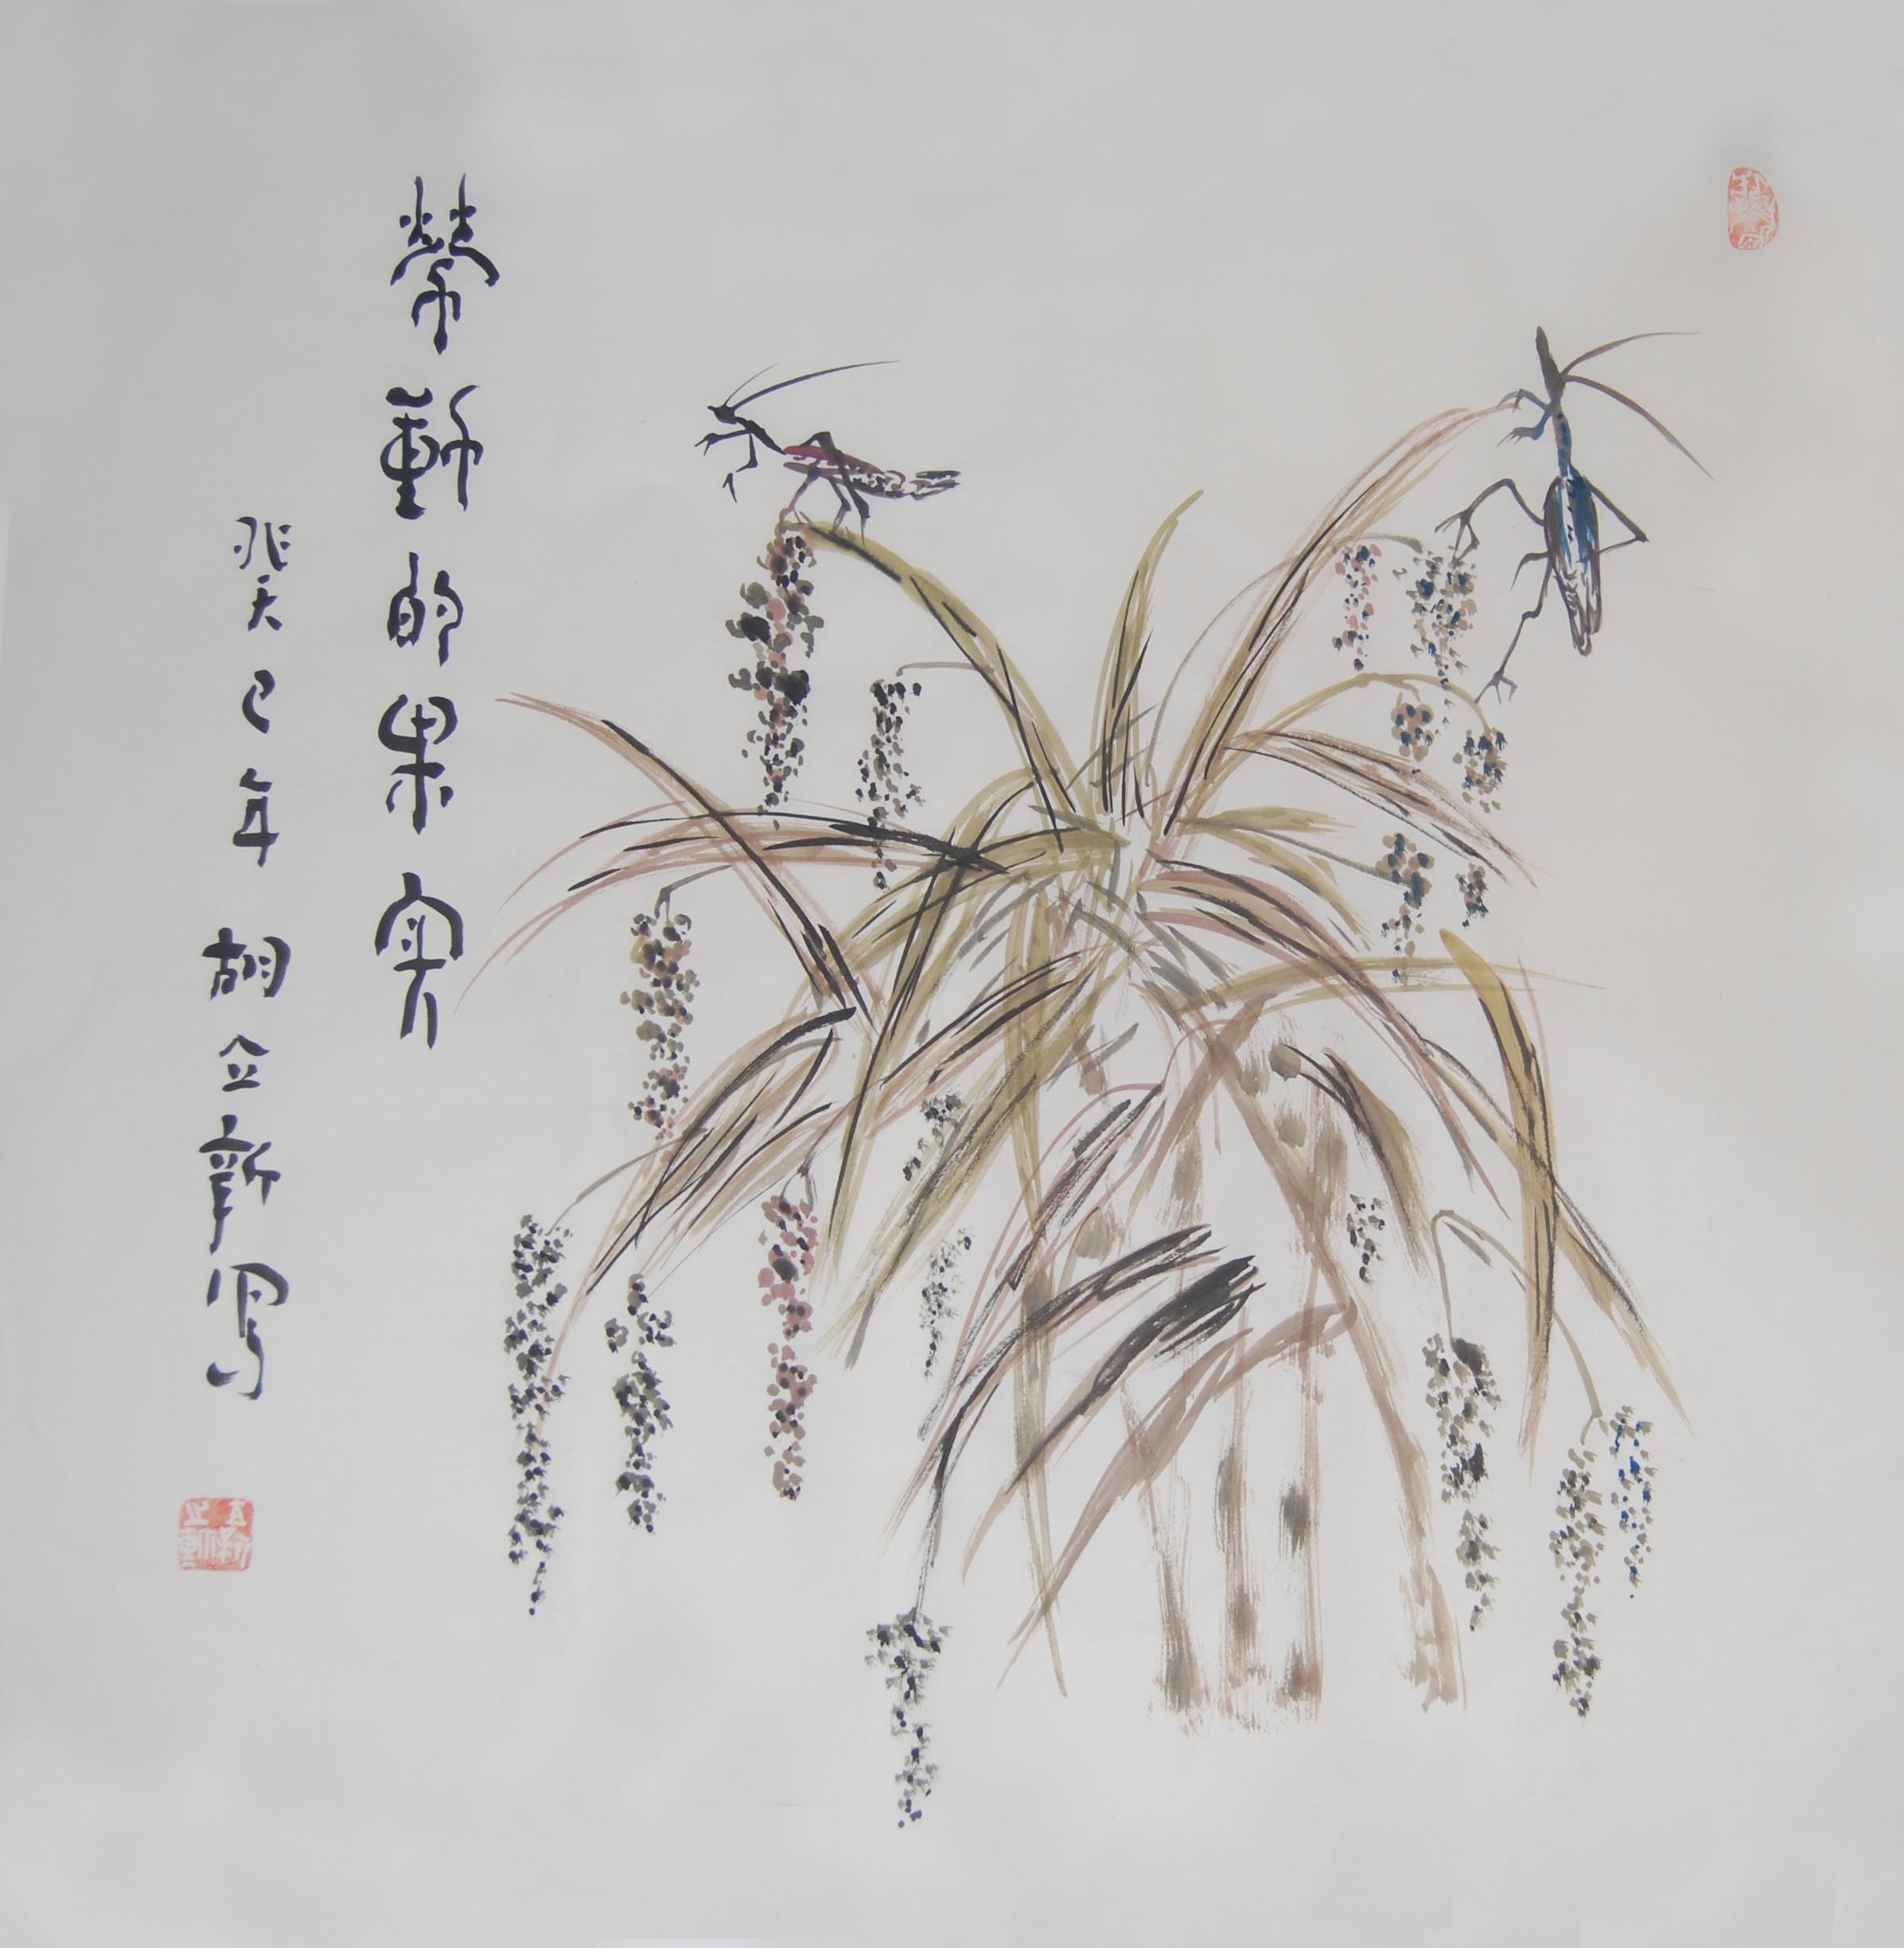 勞動的果實
癸巳年 胡立新寫